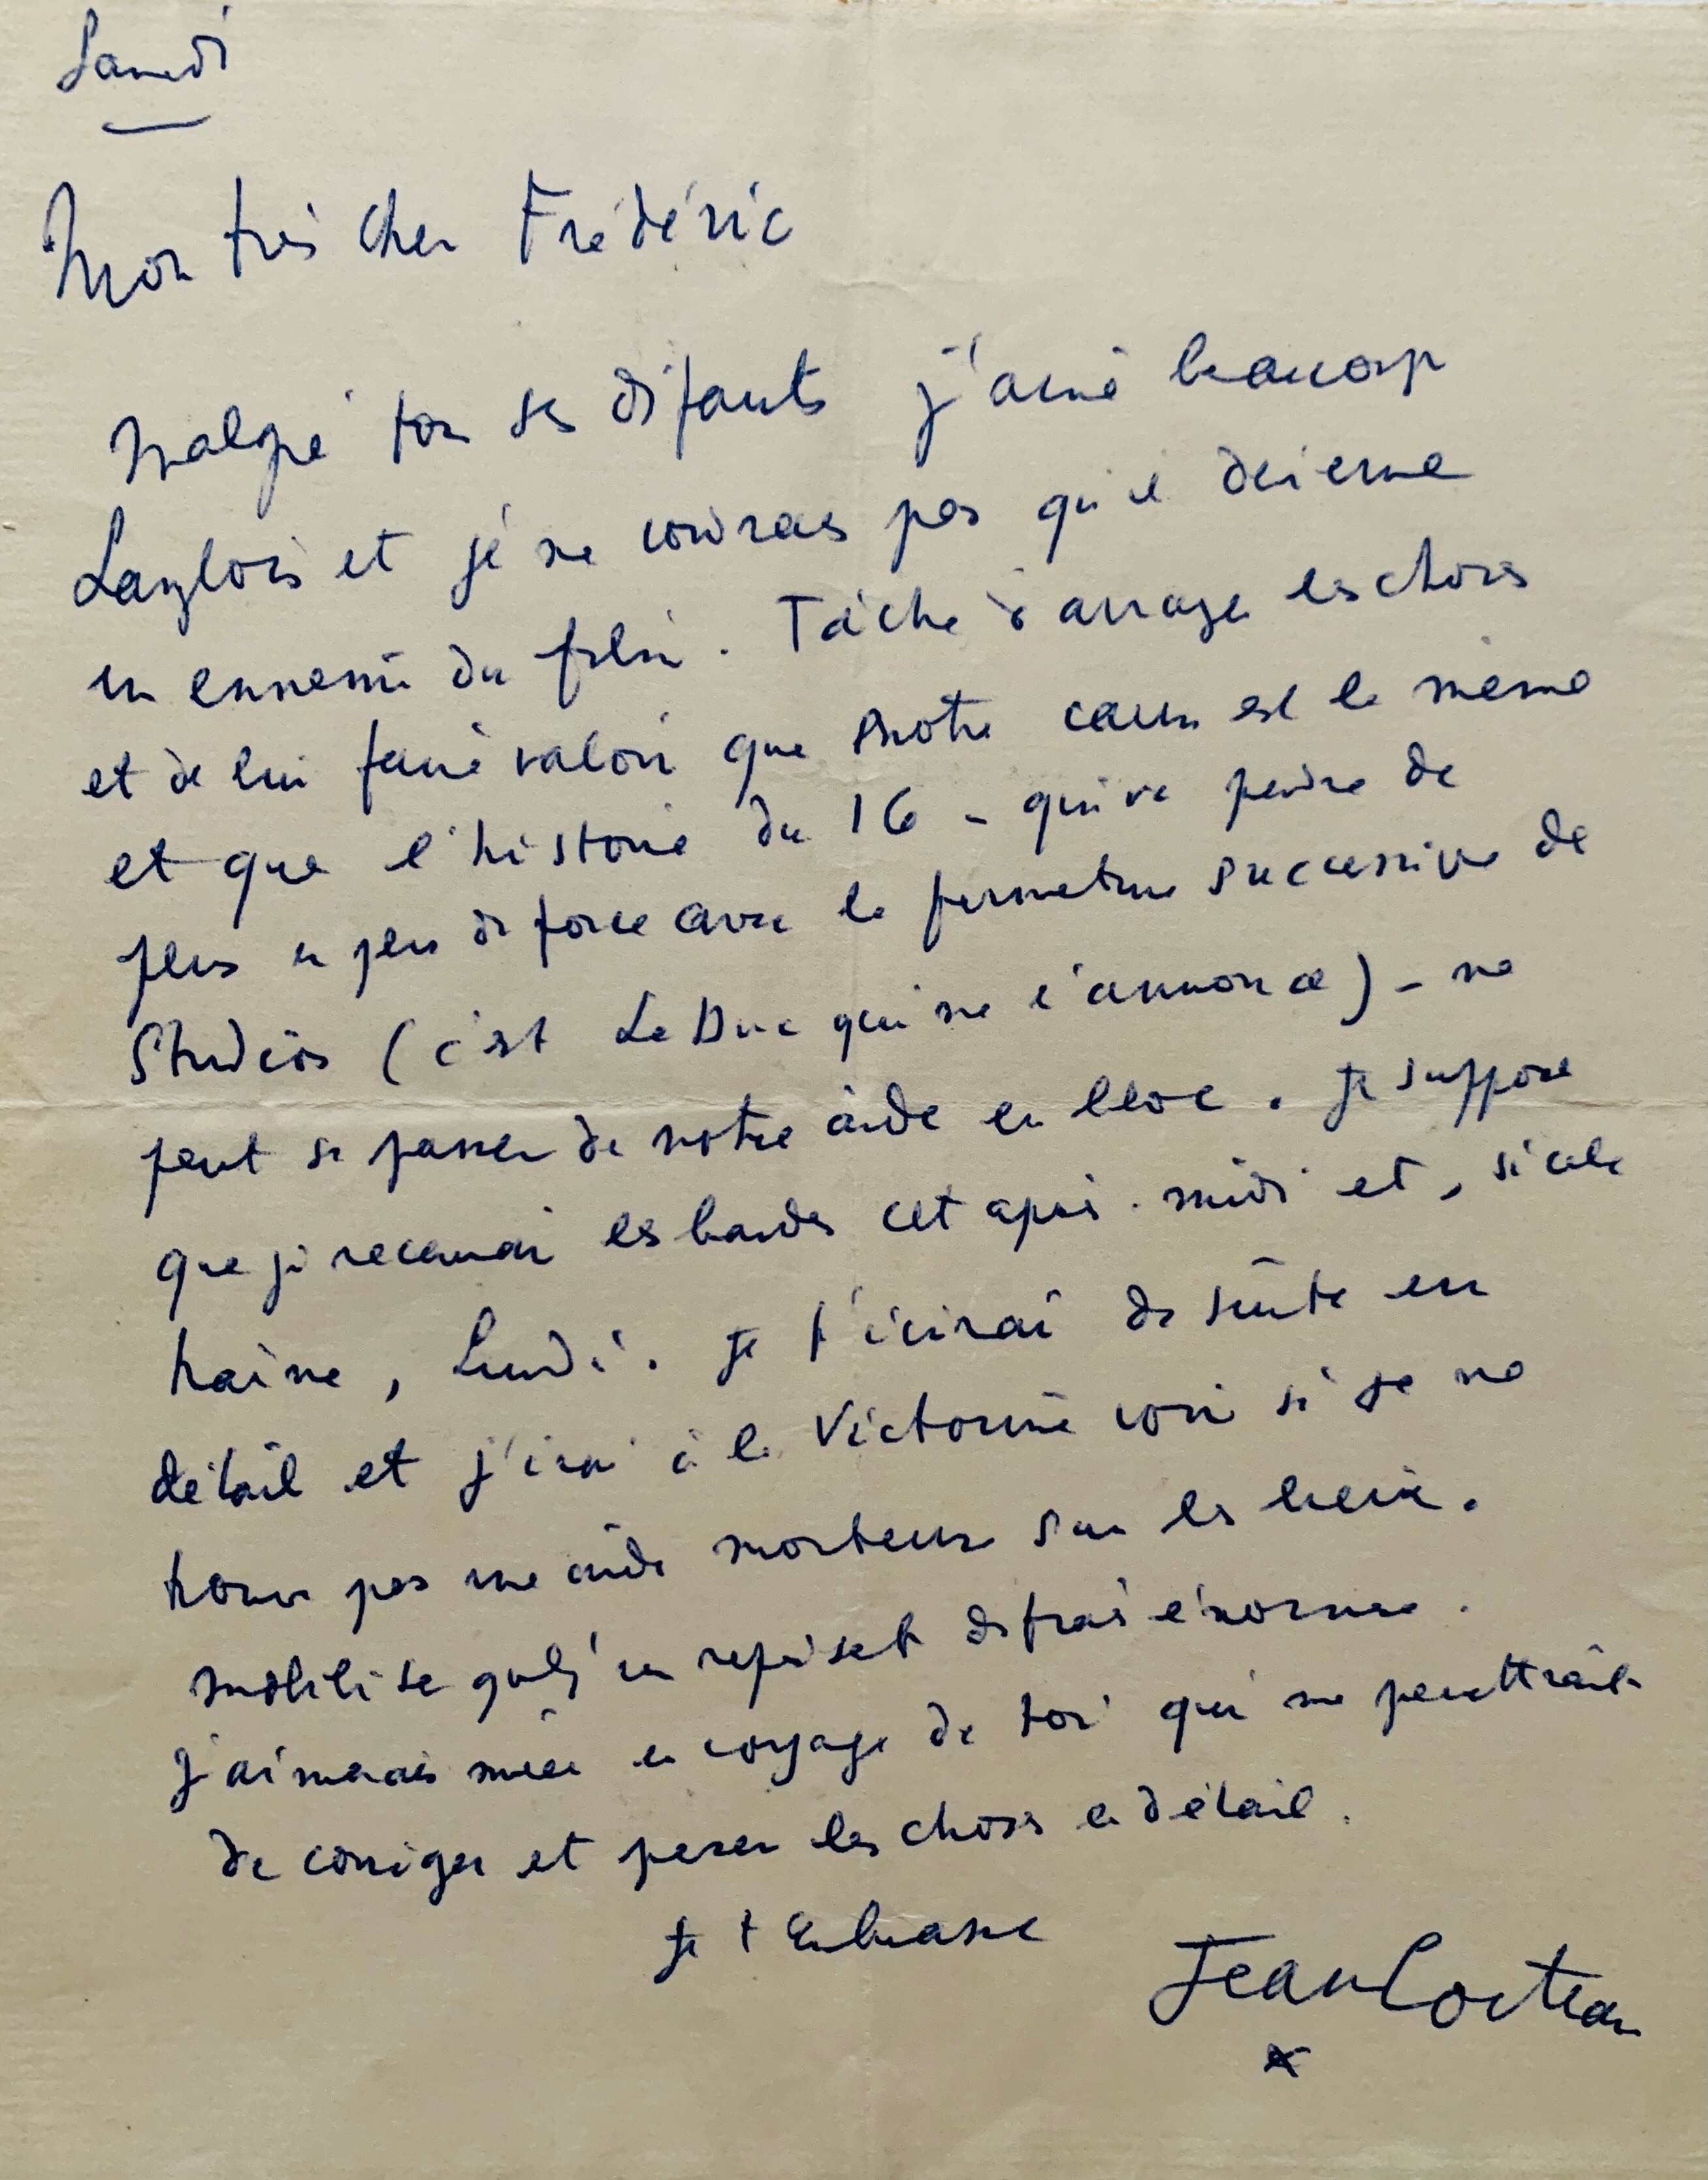 Samedi
Mon très cher Frédéric
Malgré tous ses défauts j'aime beaucoup
Langlois et je ne voudrais pas qu'il devienne
un ennemi du film. Tâche d'arranger les choses
et de lui faire valoir que notre cause est la même
et que l'histoire du 16 - qui va perdre de
plus en plus de force avec la fermeture successive de
Studios (c'est Le Duc qui me l'annonce) - ne
peut se passer de notre aide en bloc. Je suppose
que je recevrai les bandes cet après-midi et, si cela
traîne, Lundi. Je t'écirai de suite en
détail et j'irai à la Victorine voir si je ne
trouve pas une aide monteuse sur les lieux.
mobilise représet de frais énormes.
J'aimerais mieux un voyage de toi qui me permettrait
de corriger et peser les choses en détail.
Je t'embrasse
Jean Cocteau